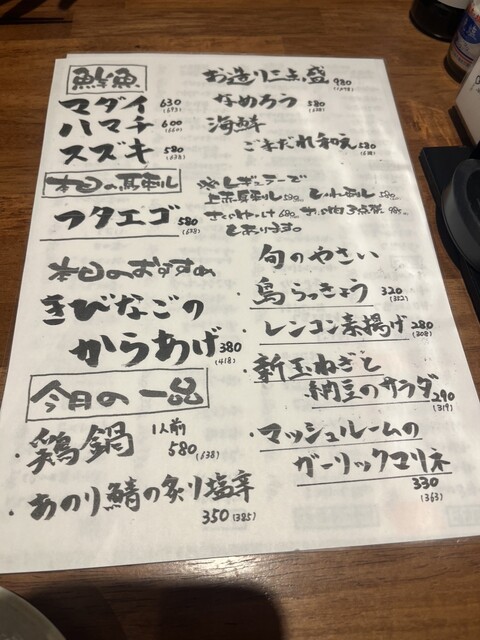 鮮魚
マダイ 630 (693)
ハマチ 600 (660)
スズキ 580 (638)
お造り三点盛 980 (1078)
なめろう 580 (638)
海鮮
ごまだれ和え 580 (638)
本日の馬刺し
フタエゴ 580 (638)
※レギュラーで
上赤馬刺し
もあります。
本日のおすすめ
きびなごの
からあげ 380 (418)
今月の一品
・鶏鍋 1人前 580 (638)
・あのり鯖の炙り塩辛
350 (385)
旬のやさい
・島らっきょう 320 (352)
・レンコン素揚げ 280 (308)
・新玉ねぎと
納豆のサラダ 290 (319)
・マッシュルームの
ガーリックマリネ
330
(363)